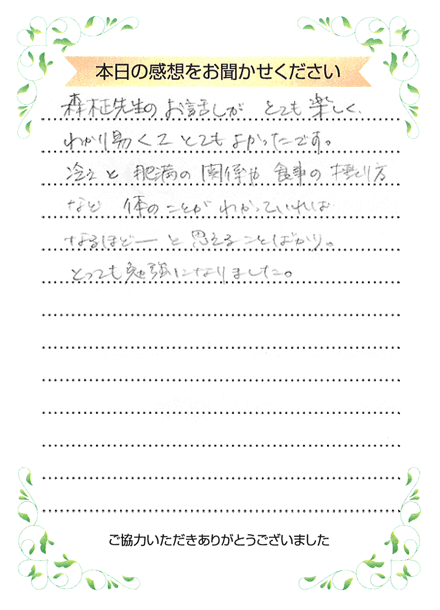 本日の感想をお聞かせください
森柾先生のお話しが とても楽しく、
わかり易くて とてもよかったです。
冷えと 肥満の関係や 食事の摂り方
など 体のことが わかっていれば
なるほどーと思えることばかり。
とっても勉強になりました。
ご協力いただきありがとうございました